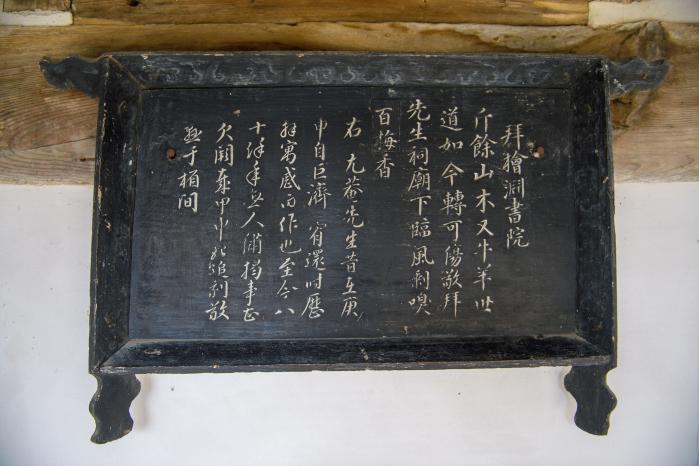 拜獪洞書院
斤餘山木又牛羊世
道如今轉可傷敬拜
先生祠廟下臨風剩嗅
百梅香
右尤菴先生昔在庚
申自巨濟宥還時歷
拜寓感而作也至今八
十餘年無人備揭事甚
欠闕歲甲申追刻敬
揭于楣間